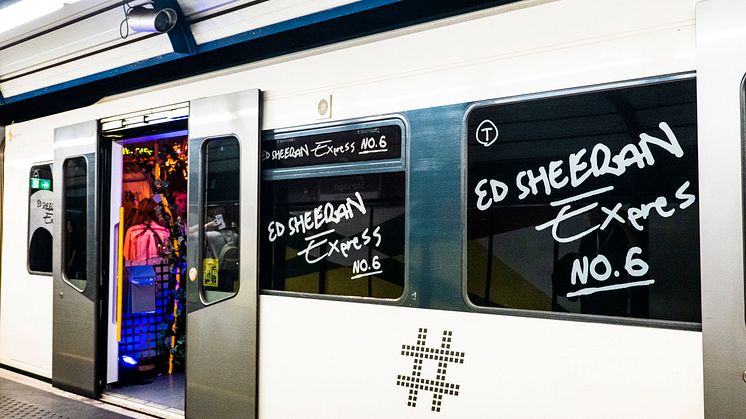 ED SHEERAN Express NO.6
ED SHEERAN
Express
NO.6
T
ED SHEERAN
Express
NO.6